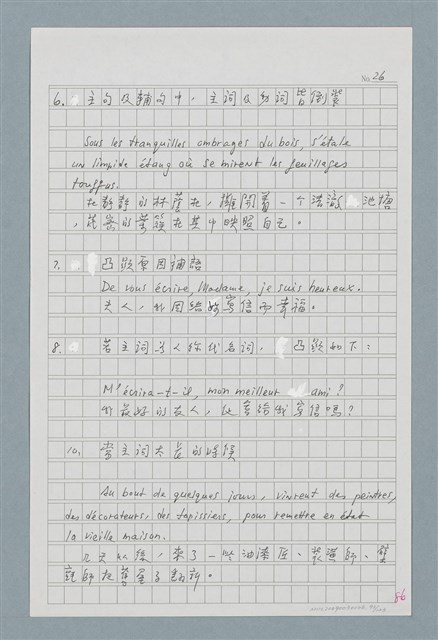 No. 26
6. 主句及輔句中,主詞及動詞皆倒裝
Sous les tranquilles ombrages du bois, s'étale
un limpide étang où se mirent les feuillages
touffus.
在靜靜的林蔭在,攤開著一个清澈池塘
,茂密的葉簇在其中映照自己。
7. 凸顯原因補語
De vous écrire, Madame, je suis heureux.
夫人,我因給妳寫信而幸福。
8. 若主詞為人稱代名詞,凸顯如下:
M'écrira-t-il, mon meilleur ami?
我最好的友人,他會給我寫信嗎?
10. 當主詞太長的時候
Au bout de quelques jours, vinrent des peintres,
des décorateurs, des tapissiers, pour remettre en état
la vieille maison.
几天以後,來了一些油漆匠、裝潢師、壁
氈師把舊屋子翻新。
86